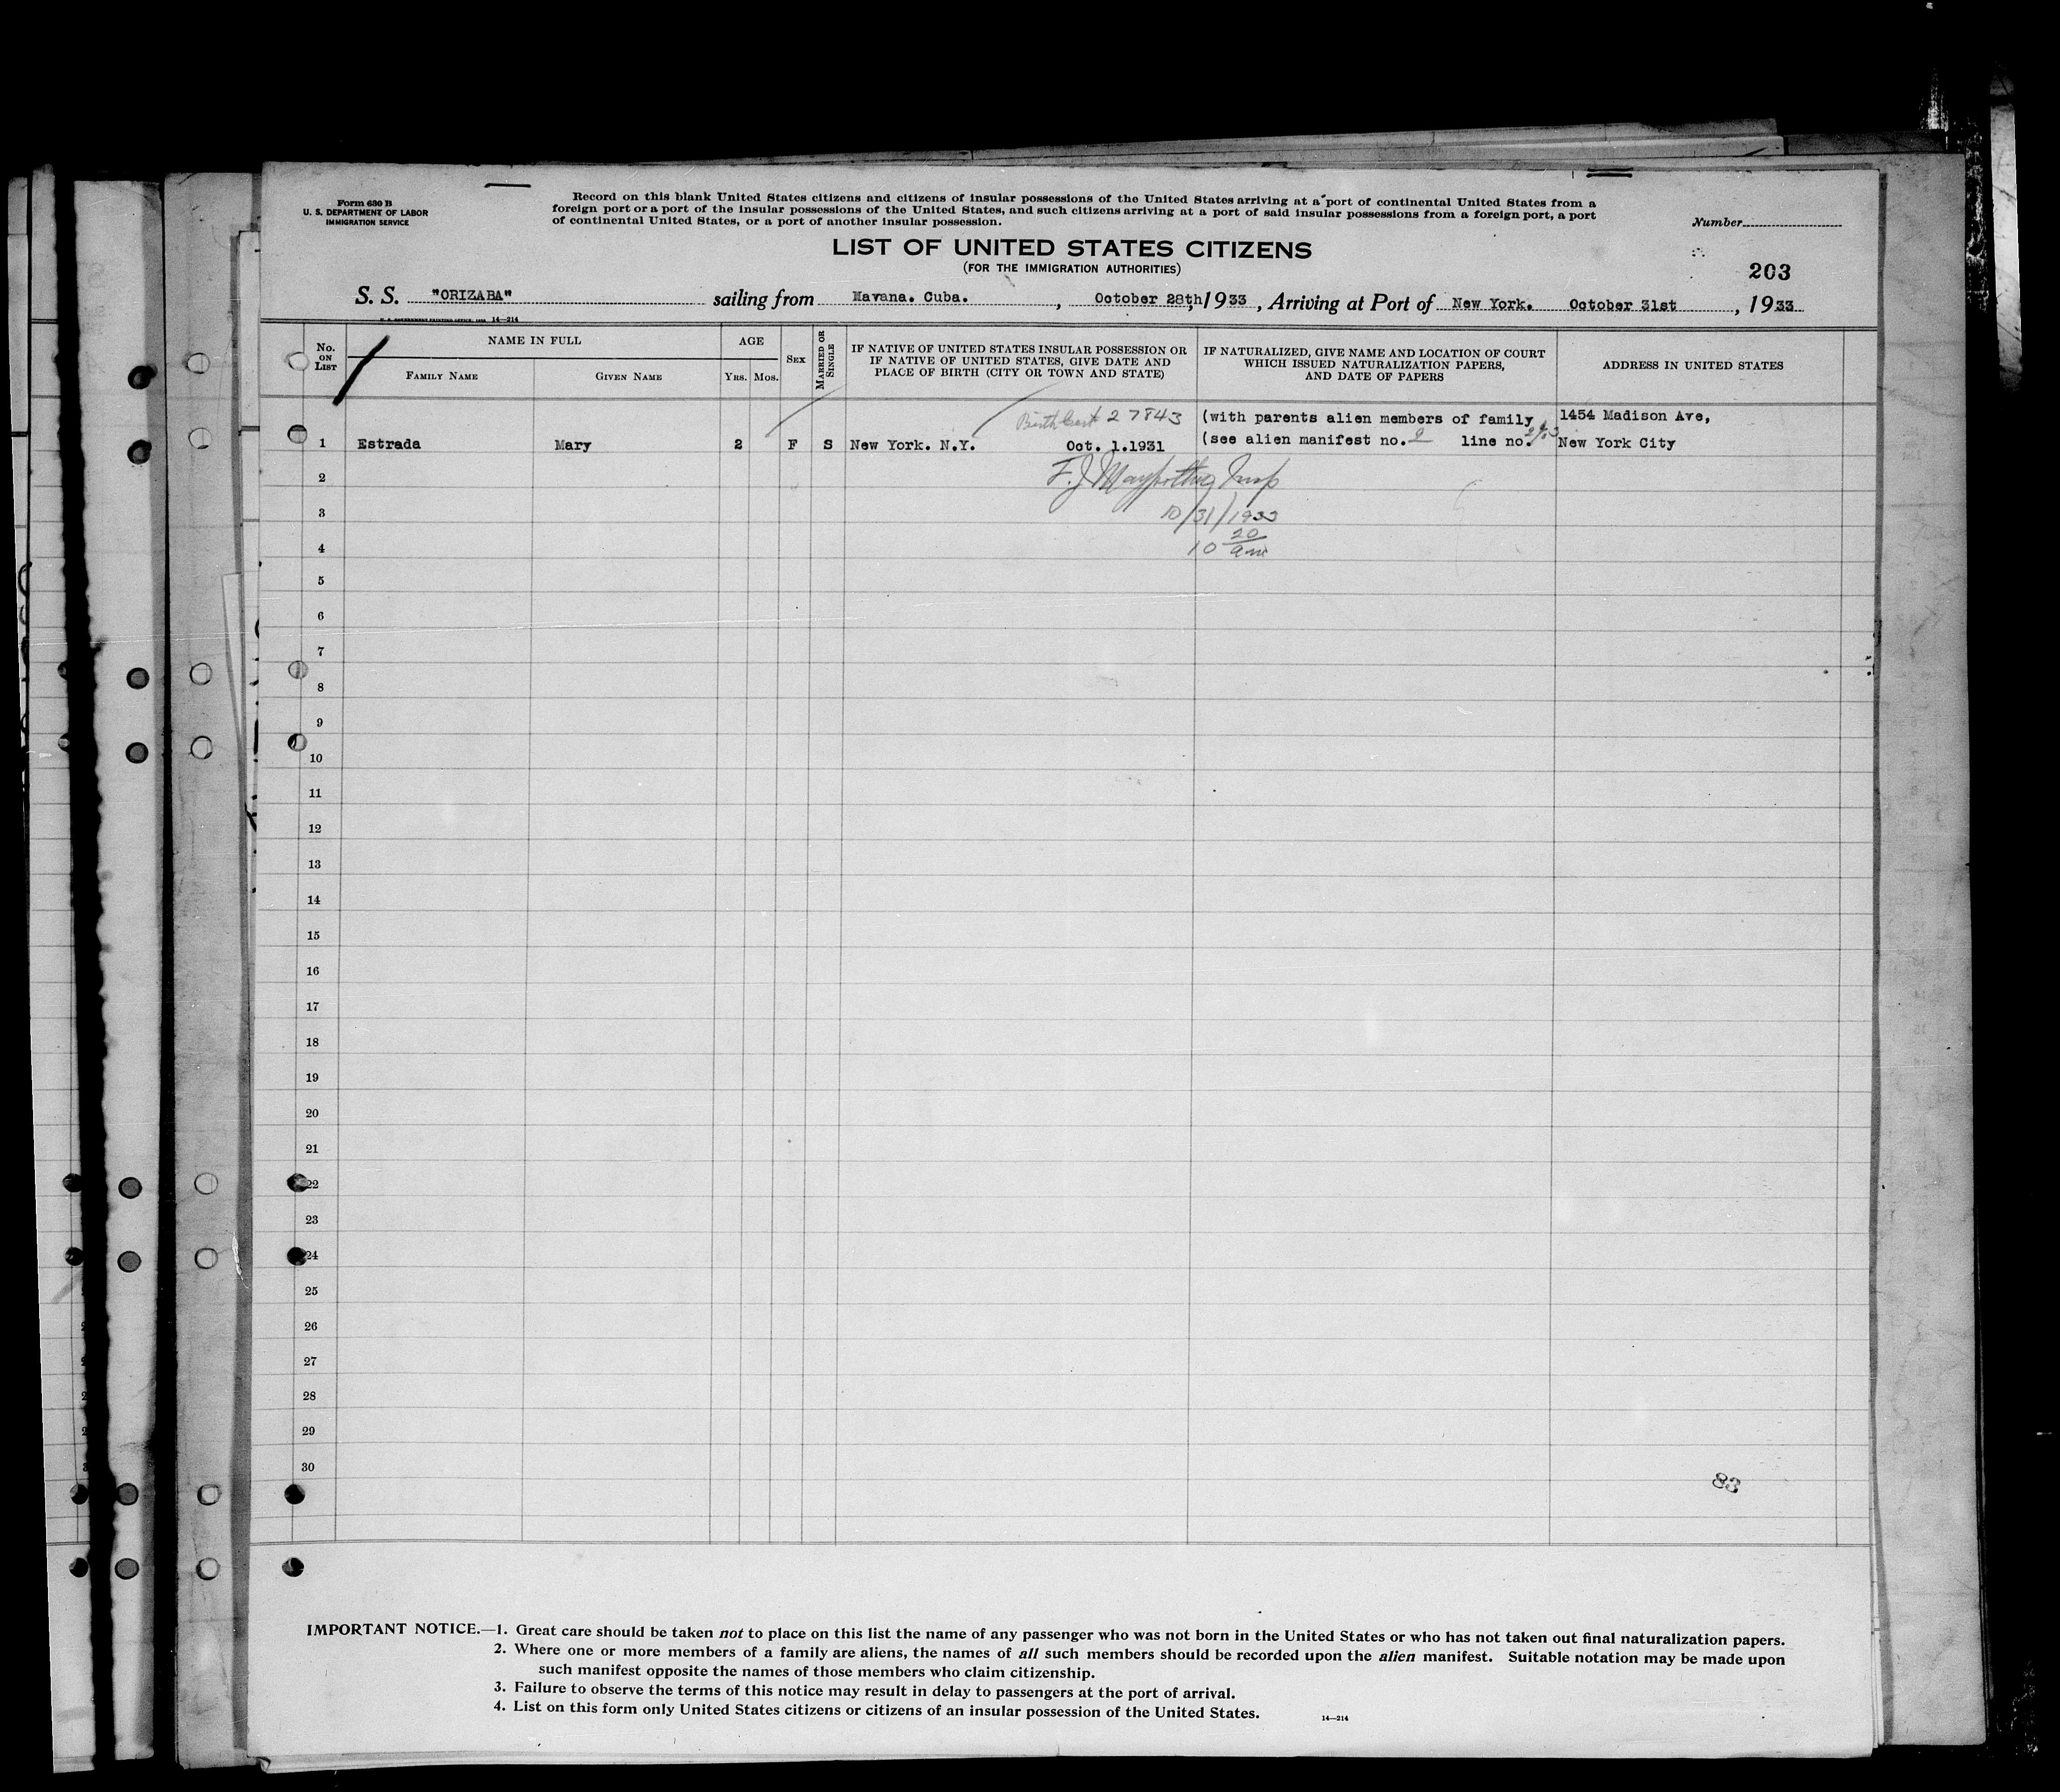 Form 630 B
U. S. DEPARTMENT OF LABOR
IMMIGRATION SERVICE
Record on this blank United States citizens and citizens of insular possessions of the United States arriving at a port of continental United States from a
foreign port or a port of the insular possessions of the United States, and such citizens arriving at a port of said insular possessions from a foreign port, a port
of continental United States, or a port of another insular possession.
Number
LIST OF UNITED STATES CITIZENS
(FOR THE IMMIGRATION AUTHORITIES)
203
S. S. "ORIZABA" sailing from Havana. Cuba. , October 28th, 1933 , Arriving at Port of New York. October 31st , 1933
14—214
No. ON LIST
NAME IN FULL
FAMILY NAME
GIVEN NAME
AGE
YRS. MOS.
SEX
MARRIED OR SINGLE
IF NATIVE OF UNITED STATES INSULAR POSSESSION OR
IF NATIVE OF UNITED STATES, GIVE DATE AND
PLACE OF BIRTH (CITY OR TOWN AND STATE)
IF NATURALIZED, GIVE NAME AND LOCATION OF COURT
WHICH ISSUED NATURALIZATION PAPERS,
AND DATE OF PAPERS
ADDRESS IN UNITED STATES
Birth Cert 27843 (with parents alien members of family 1454 Madison Ave,
1 Estrada Mary 2 F S New York. N.Y. Oct. 1.1931 (see alien manifest no. 9 line no. New York City
2 F. J. Insp
3 10/31/1933
4 10 20 am
5
6
7
8
9
10
11
12
13
14
15
16
17
18
19
20
21
22
23
24
25
26
27
28
29
30
83
IMPORTANT NOTICE.—1. Great care should be taken not to place on this list the name of any passenger who was not born in the United States or who has not taken out final naturalization papers.
2. Where one or more members of a family are aliens, the names of all such members should be recorded upon the alien manifest. Suitable notation may be made upon
such manifest opposite the names of those members who claim citizenship.
3. Failure to observe the terms of this notice may result in delay to passengers at the port of arrival.
4. List on this form only United States citizens or citizens of an insular possession of the United States.
14—214